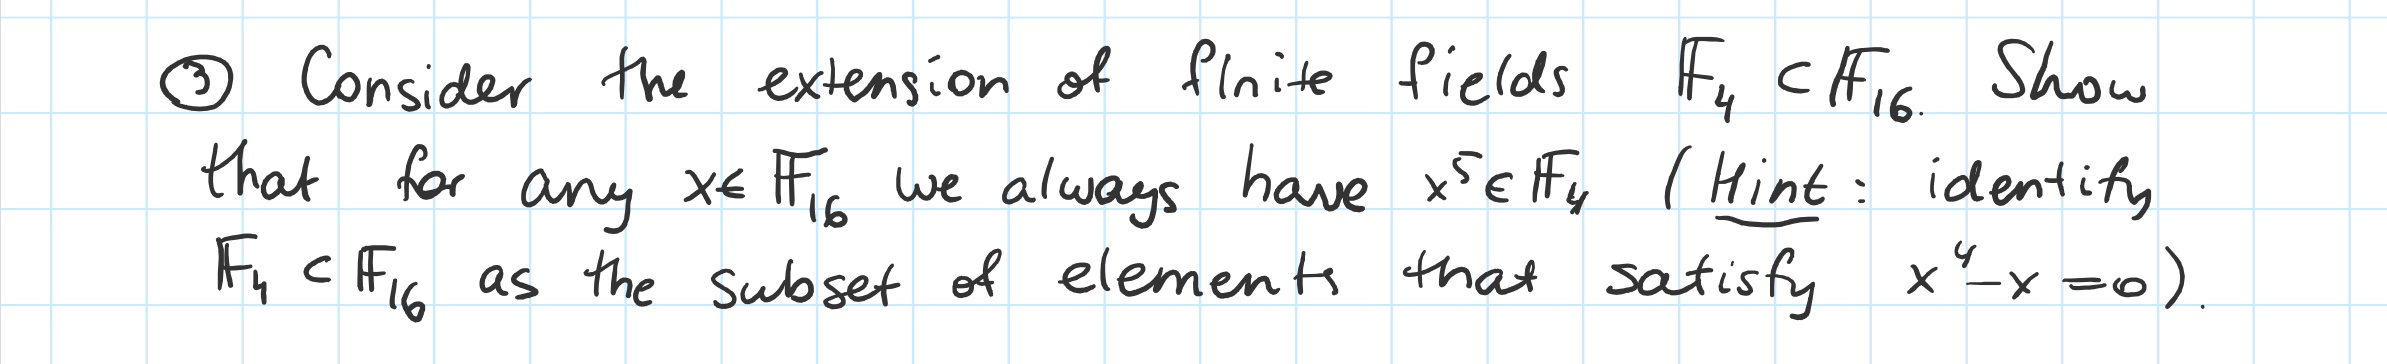 ③ Consider the extension of finite fields 𝔽₄ ⊂ 𝔽₁₆. Show
that for any x ∈ 𝔽₁₆ we always have x⁵ ∈ 𝔽₄ (Hint: identify
𝔽₄ ⊂ 𝔽₁₆ as the subset of elements that satisfy x⁴-x=0).